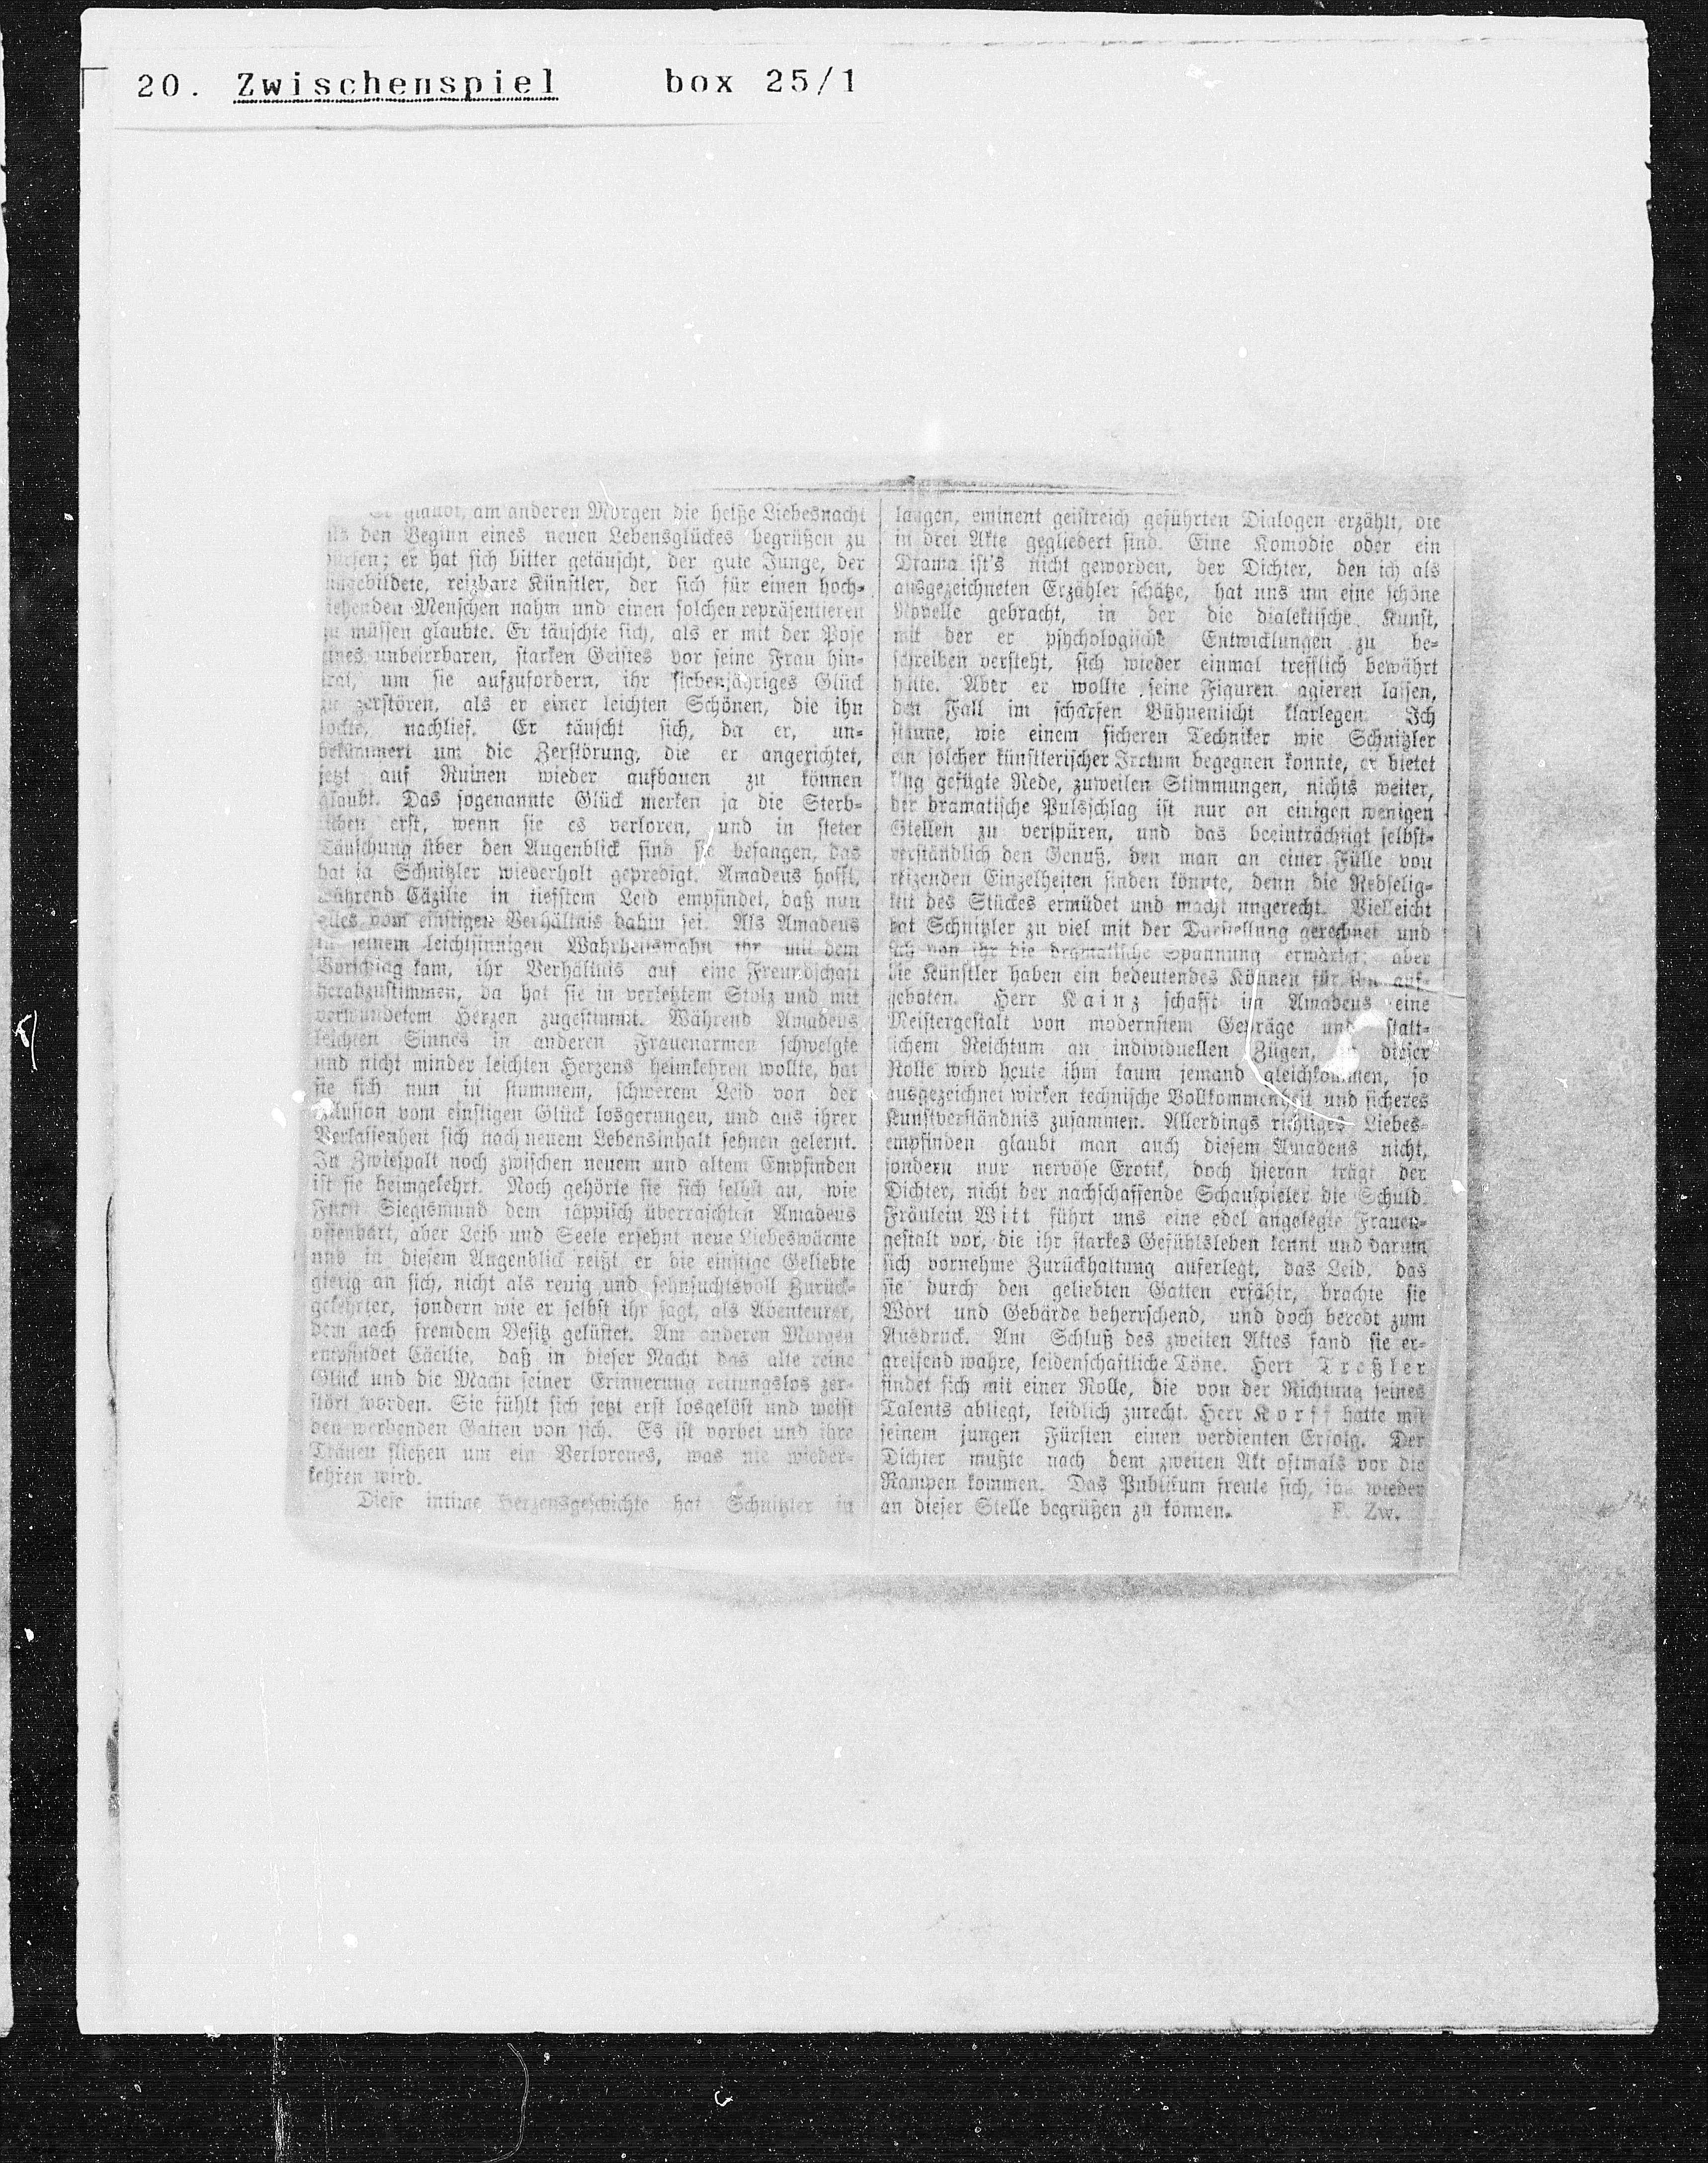 20. Zwischenspiel box 25/1
Er glaubt, am anderen Morgen die heiße Liebesnacht
als den Beginn eines neuen Lebensglückes begrüßen zu
dürfen; er hat sich bitter getäuscht, der gute Junge, der
eingebildete, reizbare Künstler, der sich für einen hoch-
stehenden Menschen nahm und einen solchen repräsentieren
zu müssen glaubte. Er täuschte sich, als er mit der Pose
eines unbeirrbaren, starken Geistes vor seine Frau hin-
trat, um sie aufzufordern, ihr siebenjähriges Glück
zu zerstören, als er einer leichten Schönen, die ihn
lockte, nachlief. Er täuscht sich, da er, un-
bekümmert um die Zerstörung, die er angerichtet,
jetzt auf Ruinen wieder aufbauen zu können
glaubt. Das sogenannte Glück merken ja die Sterb-
lichen erst, wenn sie es verloren, und in steter
Täuschung über den Augenblick sind sie befangen, das
hat ja Schnitzler wiederholt gepredigt. Amadeus hofft,
während Cäzilie in tiefstem Leid empfindet, daß nun
alles vom einstigen Verhältnis dahin sei. Als Amadeus
in seinem leichtsinnigen Wahrheitswahn ihr mit dem
Vorschlag kam, ihr Verhältnis auf eine Freundschaft
herabzustimmen, da hat sie in verletztem Stolz und mit
verwundetem Herzen zugestimmt. Während Amadeus
leichten Sinnes in anderen Frauenarmen schwelgte
und nicht minder leichten Herzens heimkehren wollte, hat
sie sich nun in stummem, schwerem Leid von der
Illusion vom einstigen Glück losgerungen, und aus ihrer
Verlassenheit sich nach neuem Lebensinhalt sehnen gelernt.
In Zwiespalt noch zwischen neuem und altem Empfinden
ist sie heimgekehrt. Noch gehörte sie sich selbst an, wie
Fürst Siegismund dem täppisch überraschten Amadeus
offenbart, aber Leib und Seele ersehnt neue Liebeswärme
und in diesem Augenblick reißt er die einstige Geliebte
gierig an sich, nicht als reuig und sehnsuchtsvoll Zurück-
gekehrter, sondern wie er selbst ihr sagt, als Abenteurer,
dem nach fremdem Besitz gelüstet. Am anderen Morgen
empfindet Cäcilie, daß in dieser Nacht das alte reine
Glück und die Macht seiner Erinnerung rettungslos zer-
stört worden. Sie fühlt sich jetzt erst losgelöst und weist
den werbenden Gatten von sich. Es ist vorbei und ihre
Tränen fließen um ein Verlorenes, was nie wieder-
kehren wird.
Diese intime Herzensgeschichte hat Schnitzler in
langen, eminent geistreich geführten Dialogen erzählt, die
in drei Akte gegliedert sind. Eine Komödie oder ein
Drama ist's nicht geworden, der Dichter, den ich als
ausgezeichneten Erzähler schätze, hat uns um eine schöne
Novelle gebracht, in der die dialektische Kunst,
mit der er psychologische Entwicklungen zu be-
schreiben versteht, sich wieder einmal trefflich bewährt
hätte. Aber er wollte seine Figuren agieren lassen,
den Fall im scharfen Bühnenlicht klarlegen. Ich
staune, wie einem sicheren Techniker wie Schnitzler
ein solcher künstlerischer Irrtum begegnen konnte, er bietet
klug gefügte Rede, zuweilen Stimmungen, nichts weiter,
der dramatische Pulsschlag ist nur an einigen wenigen
Stellen zu verspüren, und das beeinträchtigt selbst-
verständlich den Genuß, den man an einer Fülle von
reizenden Einzelheiten finden könnte, denn die Redselig-
keit des Stückes ermüdet und macht ungerecht. Vielleicht
hat Schnitzler zu viel mit der Darstellung gerechnet und
sich von ihr die dramatische Spannung erwartet; aber
die Künstler haben ein bedeutendes Können für ihn auf-
geboten. Herr Kainz schafft im Amadeus eine
Meistergestalt von modernstem Gepräge und statt-
lichem Reichtum an individuellen Zügen, in dieser
Rolle wird heute ihm kaum jemand gleichkommen, so
ausgezeichnet wirken technische Vollkommenheit und sicheres
Kunstverständnis zusammen. Allerdings richtiges Liebes-
empfinden glaubt man auch diesem Amadeus nicht,
sondern nur nervöse Erotik, doch hieran trägt der
Dichter, nicht der nachschaffende Schauspieler die Schuld.
Fräulein Witt führt uns eine edel angelegte Frauen-
gestalt vor, die ihr starkes Gefühlsleben kennt und darum
sich vornehme Zurückhaltung auferlegt, das Leid, das
sie durch den geliebten Gatten erfährt, brachte sie
Wort und Gebärde beherrschend, und doch beredt zum
Ausdruck. Am Schluß des zweiten Aktes fand sie er-
greifend wahre, leidenschaftliche Töne. Herr Treßler
findet sich mit einer Rolle, die von der Richtung seines
Talents abliegt, leidlich zurecht. Herr Korff hatte mit
seinem jungen Fürsten einen verdienten Erfolg. Der
Dichter mußte nach dem zweiten Akt oftmals vor die
Rampen kommen. Das Publikum freute sich, ihn wieder
an dieser Stelle begrüßen zu können. F. Zw.